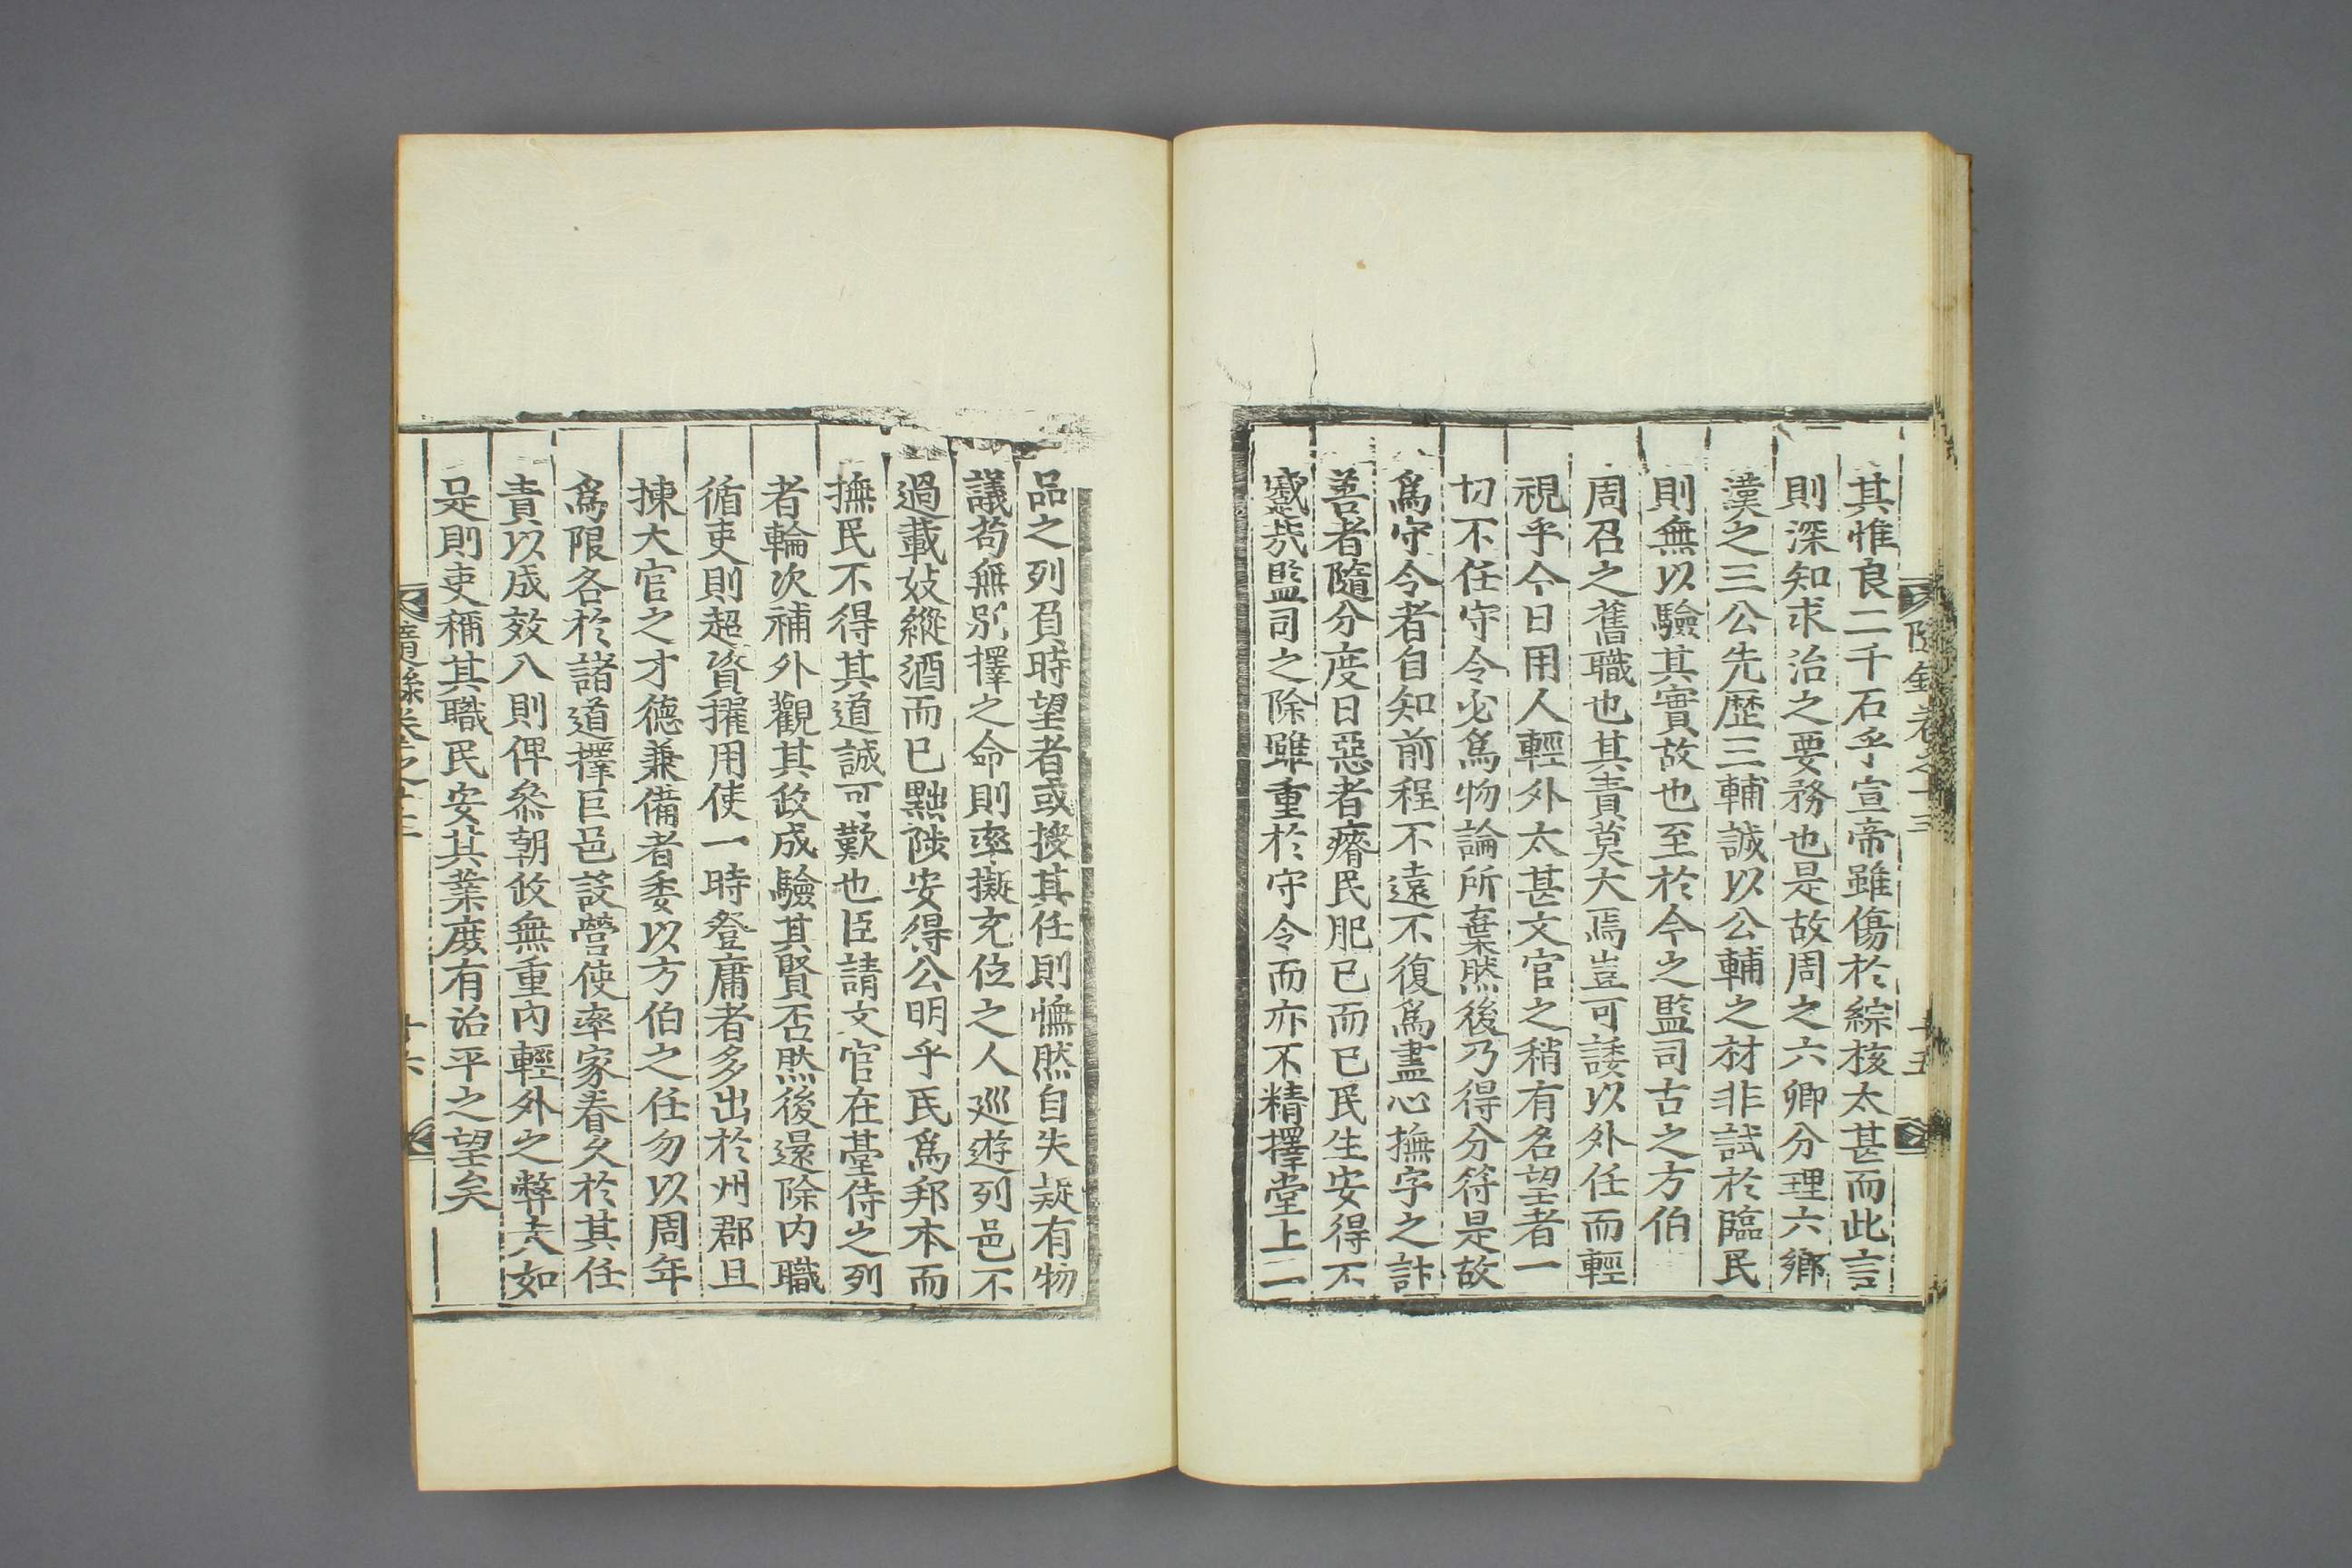 隨錄卷之十三
十五
其惟良二千石乎宣帝雖傷於綜核太甚而此言
則深知求治之要務也是故周之六卿分理六鄉
漢之三公先歷三輔誠以公輔之材非試於臨民
則無以驗其實故也至於今之監司古之方伯
周召之舊職也其責莫大焉豈可諉以外任而輕
視乎今日用人輕外太甚文官之稍有名望者一
切不任守令必爲物論所棄然後乃得分符是故
爲守令者自知前程不遠不復爲盡心撫字之計
善者隨分度日惡者瘠民肥已而已民生安得不
蹙哉監司之除雖重於守令而亦不精擇堂上二
品之列負時望者或授其任則憮然自失疑有物
議苟無別擇之命則率擬充位之人巡遊列邑不
過載妓縱酒而已黜陟安得公明乎民爲邦本而
撫民不得其道誠可歎也臣請文官在臺侍之列
者輪次補外觀其政成驗其賢否然後還除內職
循吏則超資擢用使一時登庸者多出於州郡且
揀大官之才德兼備者委以方伯之任勿以周年
爲限各於諸道擇巨邑設營使率家眷久於其任
責以成效入則俾參朝政無重內輕外之弊夫如
是則吏稱其職民安其業庶有治平之望矣
隨錄卷之十三
十六